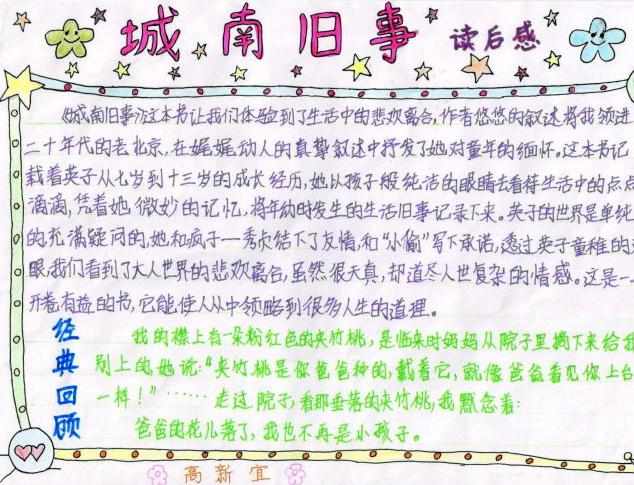 城南旧事 读后感
《城南旧事》这本书让我们体验到了生活中的悲欢离合,作者悠悠的叙述将我领进
二十年代的老北京,在娓娓动人的真挚叙述中抒发了她对童年的缅怀。这本书记
载着英子从七岁到十三岁的成长经历,她以孩子般纯洁的眼睛去看待生活中的点点
滴滴,凭着她微妙的记忆,将年幼时发生的生活旧事记录下来。英子的世界是单纯
的充满疑问的,她和疯子——秀贞结下了友情,和“小偷”写下承诺,透过英子童稚的
眼,我们看到了大人世界的悲欢离合,虽然很天真,却道尽人世复杂的情感。这是一
开卷有益的书,它能使人从中领略到很多人生的道理。
经典回顾
我的襟上有一朵粉红色的夹竹桃,是临来时妈妈从院子里摘下来给我
别上的,她说:“夹竹桃是你爸爸种的,戴着它,就像爸爸看见你上台
一样!”······走过院子,看那垂落的夹竹桃,我默念着:
爸爸的花儿落了,我也不再是小孩子。
高新宜